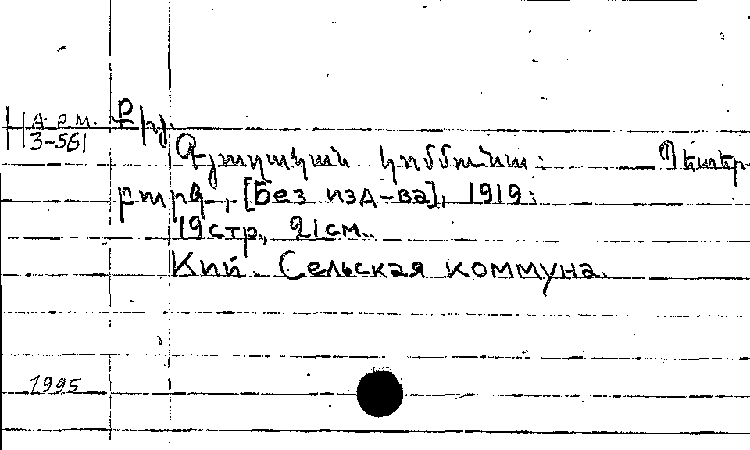 А.р.м. Քիյ.
3-561
Գյուղական կոմմունա: Պետեր-
բուրգ, [Без изд-ва], 1919:
19 стр., 21 см.
Кий. Сельская коммуна.
1995